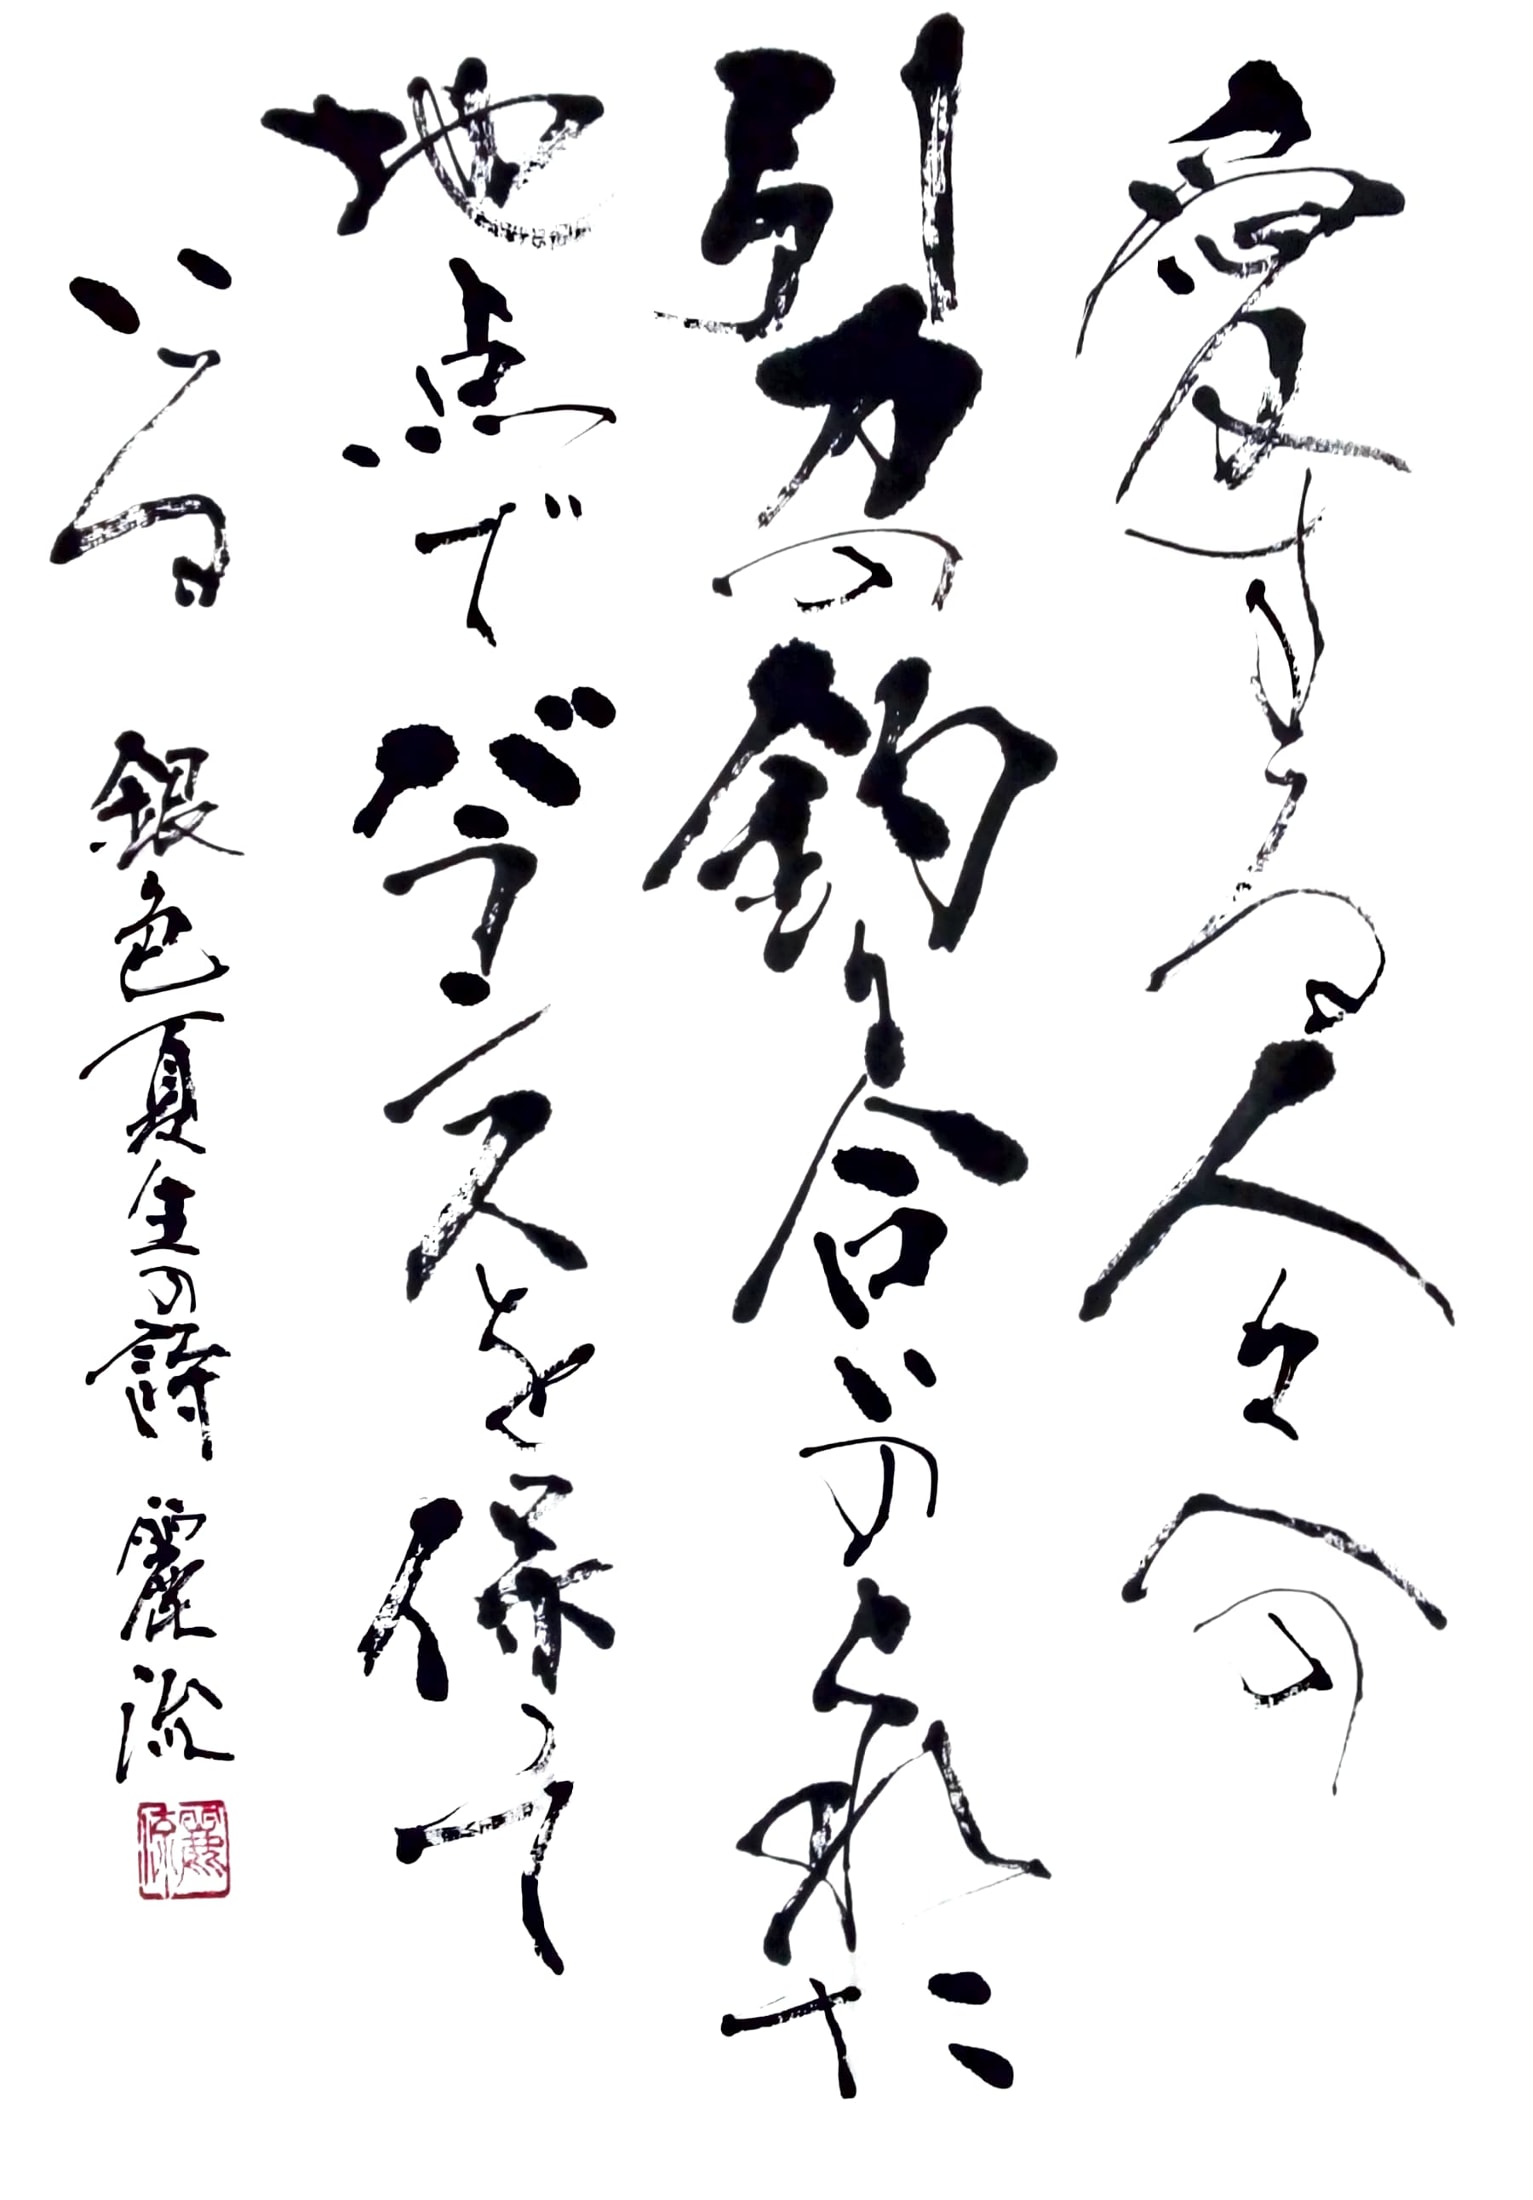 愛する人々への
引力の釣り合いのとれた
地点でバランスを保って
いる 銀色夏生の詩 麗流
麗流